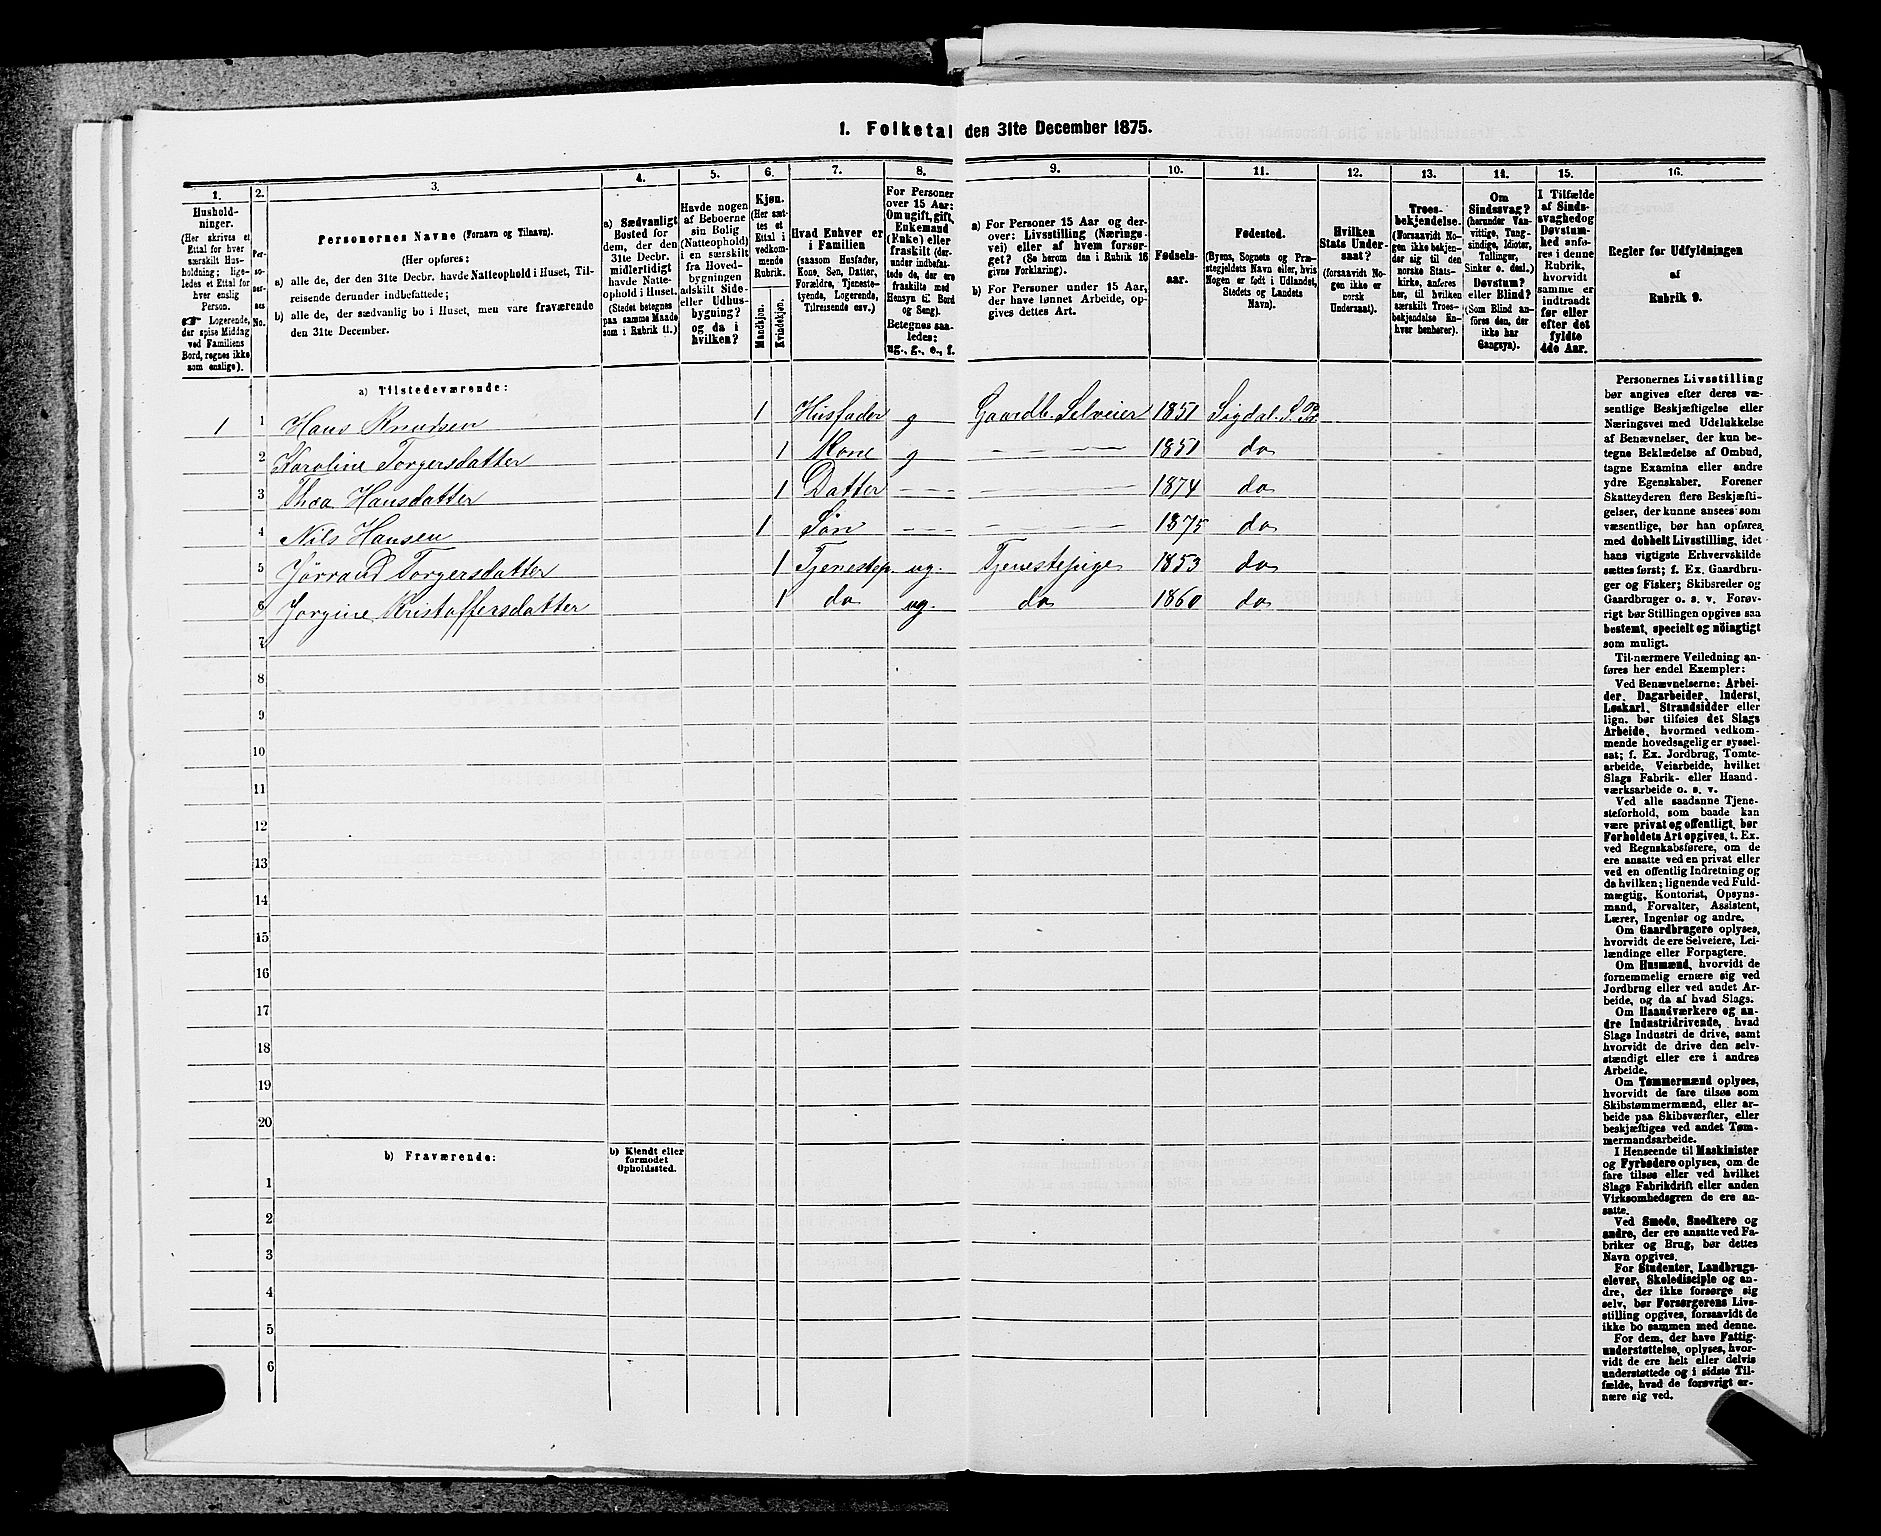 1. Folketal den 31te December 1875.
1. 2. 3. 4. 5. 6. 7. 8. 9. 10. 11. 12. 13. 14. 15. 16.
Hushold-
ninger.
(Her skrives et
Ettal for hver
særskilt Hus-
holdning; lige-
ledes et Ettal for
hver enslig
Person.
☛ Logerende,
der spise Middag
ved Familiens
Bord, regnes ikke
som enslige).
Per-
so-
ner-
nes
No.
Personernes Navne (Fornavn og Tilnavn).
(Her opføres:
a) alle de, der den 31te Decbr. havde Natteophold i Huset, Til-
reisende derunder indbefattede;
b) alle de, der sædvanlig bo i Huset, men vare fraværende
den 31te December.
a) Sædvanligt
Bosted for
dem, der den
31te Decbr.
midlertidigt
havde Natte-
ophold i Huset.
(Stedet betegnes
paa samme Maade
som i Rubrik 11.)
Havde nogen
af Beboerne
sin Bolig
(Natteophold)
i en særskilt
fra Hoved-
bygningen
adskilt Side-
eller Udhus-
bygning?
og da i
hvilken?
Kjøn.
(Her sæt-
tes et
Ettal i
vedkom-
mende
Rubrik.
Mandkjøn.
Kvindekjøn.
Hvad Enhver er
i Familien
(saasom Husfader,
Kone, Søn, Datter,
Forældre, Tjeneste-
tyende, Logerende,
Tilreisende osv.)
For Personer
over 15 Aar:
Om ugift, gift,
Enkemand
(Enke) eller
fraskilt (der-
under indbefat-
tede de, der ere
fraskilte med
Hensyn til Bord
og Seng).
Betegnes saa-
ledes:
ug., g., e., f.
a) For Personer 15 Aar og der-
over: Livsstilling (Nærings-
vei) eller af hvem forsør-
get? (Se herom den i Rubrik 16
givne Forklaring).
b) For Personer under 15 Aar,
der have lønnet Arbeide, op-
gives dettes Art.
Fødsels-
aar.
Fødested.
(Byens, Sognets og Præ-
stegjeldets Navn eller, hvis
Nogen er født i Udlandet,
Stedets og Landets
Navn).
Hvilken
Stats Under-
saat?
(forsaavidt No-
gen ikke er
norsk
Undersaat).
Troes-
bekjendelse.
(Forsaavidt No-
gen ikke bekjen-
der sig til den
norske Stats-
kirke, anføres
her, til hvilken
særskilt Troes-
bekjendelse En-
hver henhører).
Om
Sindssvag?
(herunder Van-
vittige, Tung-
sindige, Idioter,
Tullinger,
Sinker o. desl.)
Døvstum?
eller Blind?
(Som Blind an-
føres den, der
ikke har
Gangsyn).
I Tilfælde
af Sinds-
svaghed og
Døvstum-
hed anfø-
res i denne
Rubrik,
hvorvidt
samme er
indtraadt
før eller
efter det
fyldte
4de Aar.
Regler for Udfyldningen
af
Rubrik 9.
a) Tilstedeværende:
1 1 Hans Knudsen 1 Husfader g Gaardb. Selveier 1851 Sigdal. S. Pr.
2 Karoline Torgersdatter 1 Kone g — — — 1850 do
3 Thea Hansdatter 1 Datter — — 1874 do
4 Nils Hansen 1 Søn — — — — 1875 do
5 Jørrand Torgersdatter 1 Tjenestep. ug. Tjenestepige 1853 do
6 Jørgine Kristoffersdatter 1 do ug. do 1860 do
7
8
9
10
11
12
13
14
15
16
17
18
19
20
b) Fraværende:
b) Kjendt eller
formodet
Opholdssted.
1
2
3
4
5
6
Personernes Livsstilling
bør angives efter deres væ-
sentlige Beskjæftigelse eller
Næringsvei med Udelukkelse
af Benævnelser, der kun be-
tegne Beklædelse af Ombud,
tagne Examina eller andre
ydre Egenskaber. Forener
Skatteyderen flere Beskjæfti-
gelser, der kunne ansees som
væsentlige, bør han opføres
med dobbelt Livsstilling, idet
hans vigtigste Erhvervskilde
sættes først; f. Ex. Gaardbru-
ger og Fisker; Skibsreder og
Gaardbruger o. s. v. Forøv-
rigt bør Stillingen opgives saa
bestemt, specielt og nøiagtigt
som muligt.
Til nærmere Veiledning an-
føres her endel Exempler:
Ved Benævnelserne: Arbei-
der, Dagarbeider, Inderst,
Løskarl, Strandsidder eller
lign. bør tilføies det Slags
Arbeide, hvormed vedkom-
mende hovedsagelig er syssel-
sat; f. Ex. Jordbrug, Tomte-
arbeide, Veiarbeide, hvilket
Slags Fabrik- eller Haand-
værksarbeide o. s. v.
Ved alle saadanne Tjene-
steforhold, som baade kan
være privat og offentligt, bør
Forholdets Art opgives, t. Ex.
ved Regnskabsførere, om de
ere ansatte ved en privat eller
ved en offentlig Indretning og
da hvilken; lignende ved Fuld-
mægtig, Kontorist, Opsyns-
mand, Forvalter, Assistent,
Lærer, Ingeniør og andre.
Om Gaardbrugere oplyses,
hvorvidt de ere Selveiere, Lei-
lændinge eller Forpagtere.
Om Husmænd, hvorvidt de
fornemmelig ernære sig ved
Jordbrug eller ved andet Ar-
beide, og da af hvad Slags.
Om Haandværkere og an-
dre Industridrivende, hvad
Slags Industri de drive, samt
hvorvidt de drive den selv-
stændigt eller ere i andres
Arbeide.
Om Tømmermænd oplyses,
hvorvidt de fare tilsøs som
Skibstømmermænd, eller ar-
beide paa Skibsværfter, eller
beskjæftiges ved andet Tøm-
mermandsarbeide.
I Henseende til Maskinister
og Fyrbødere oplyses, om de
fare tilsøs eller ved hvilket
Slags Fabrikdrift eller anden
Virksomhedsgren de ere an-
satte.
Ved Smede, Snedkere og
andre, der ere ansatte ved Fa-
briker og Brug, bør dettes
Navn opgives.
For Studenter, Landbrugs-
elever, Skoledisciple og an-
dre, der ikke forsørge sig
selv, bør Forsørgerens Livs-
stilling opgives, forsaavidt de
ikke bo sammen med denne.
For dem, der have Fattig-
understøttelse, oplyses, hvor-
vidt de ere helt eller delvis
understøttede og i sidste Til-
fælde, hvad de forøvrigt er-
nære sig ved.